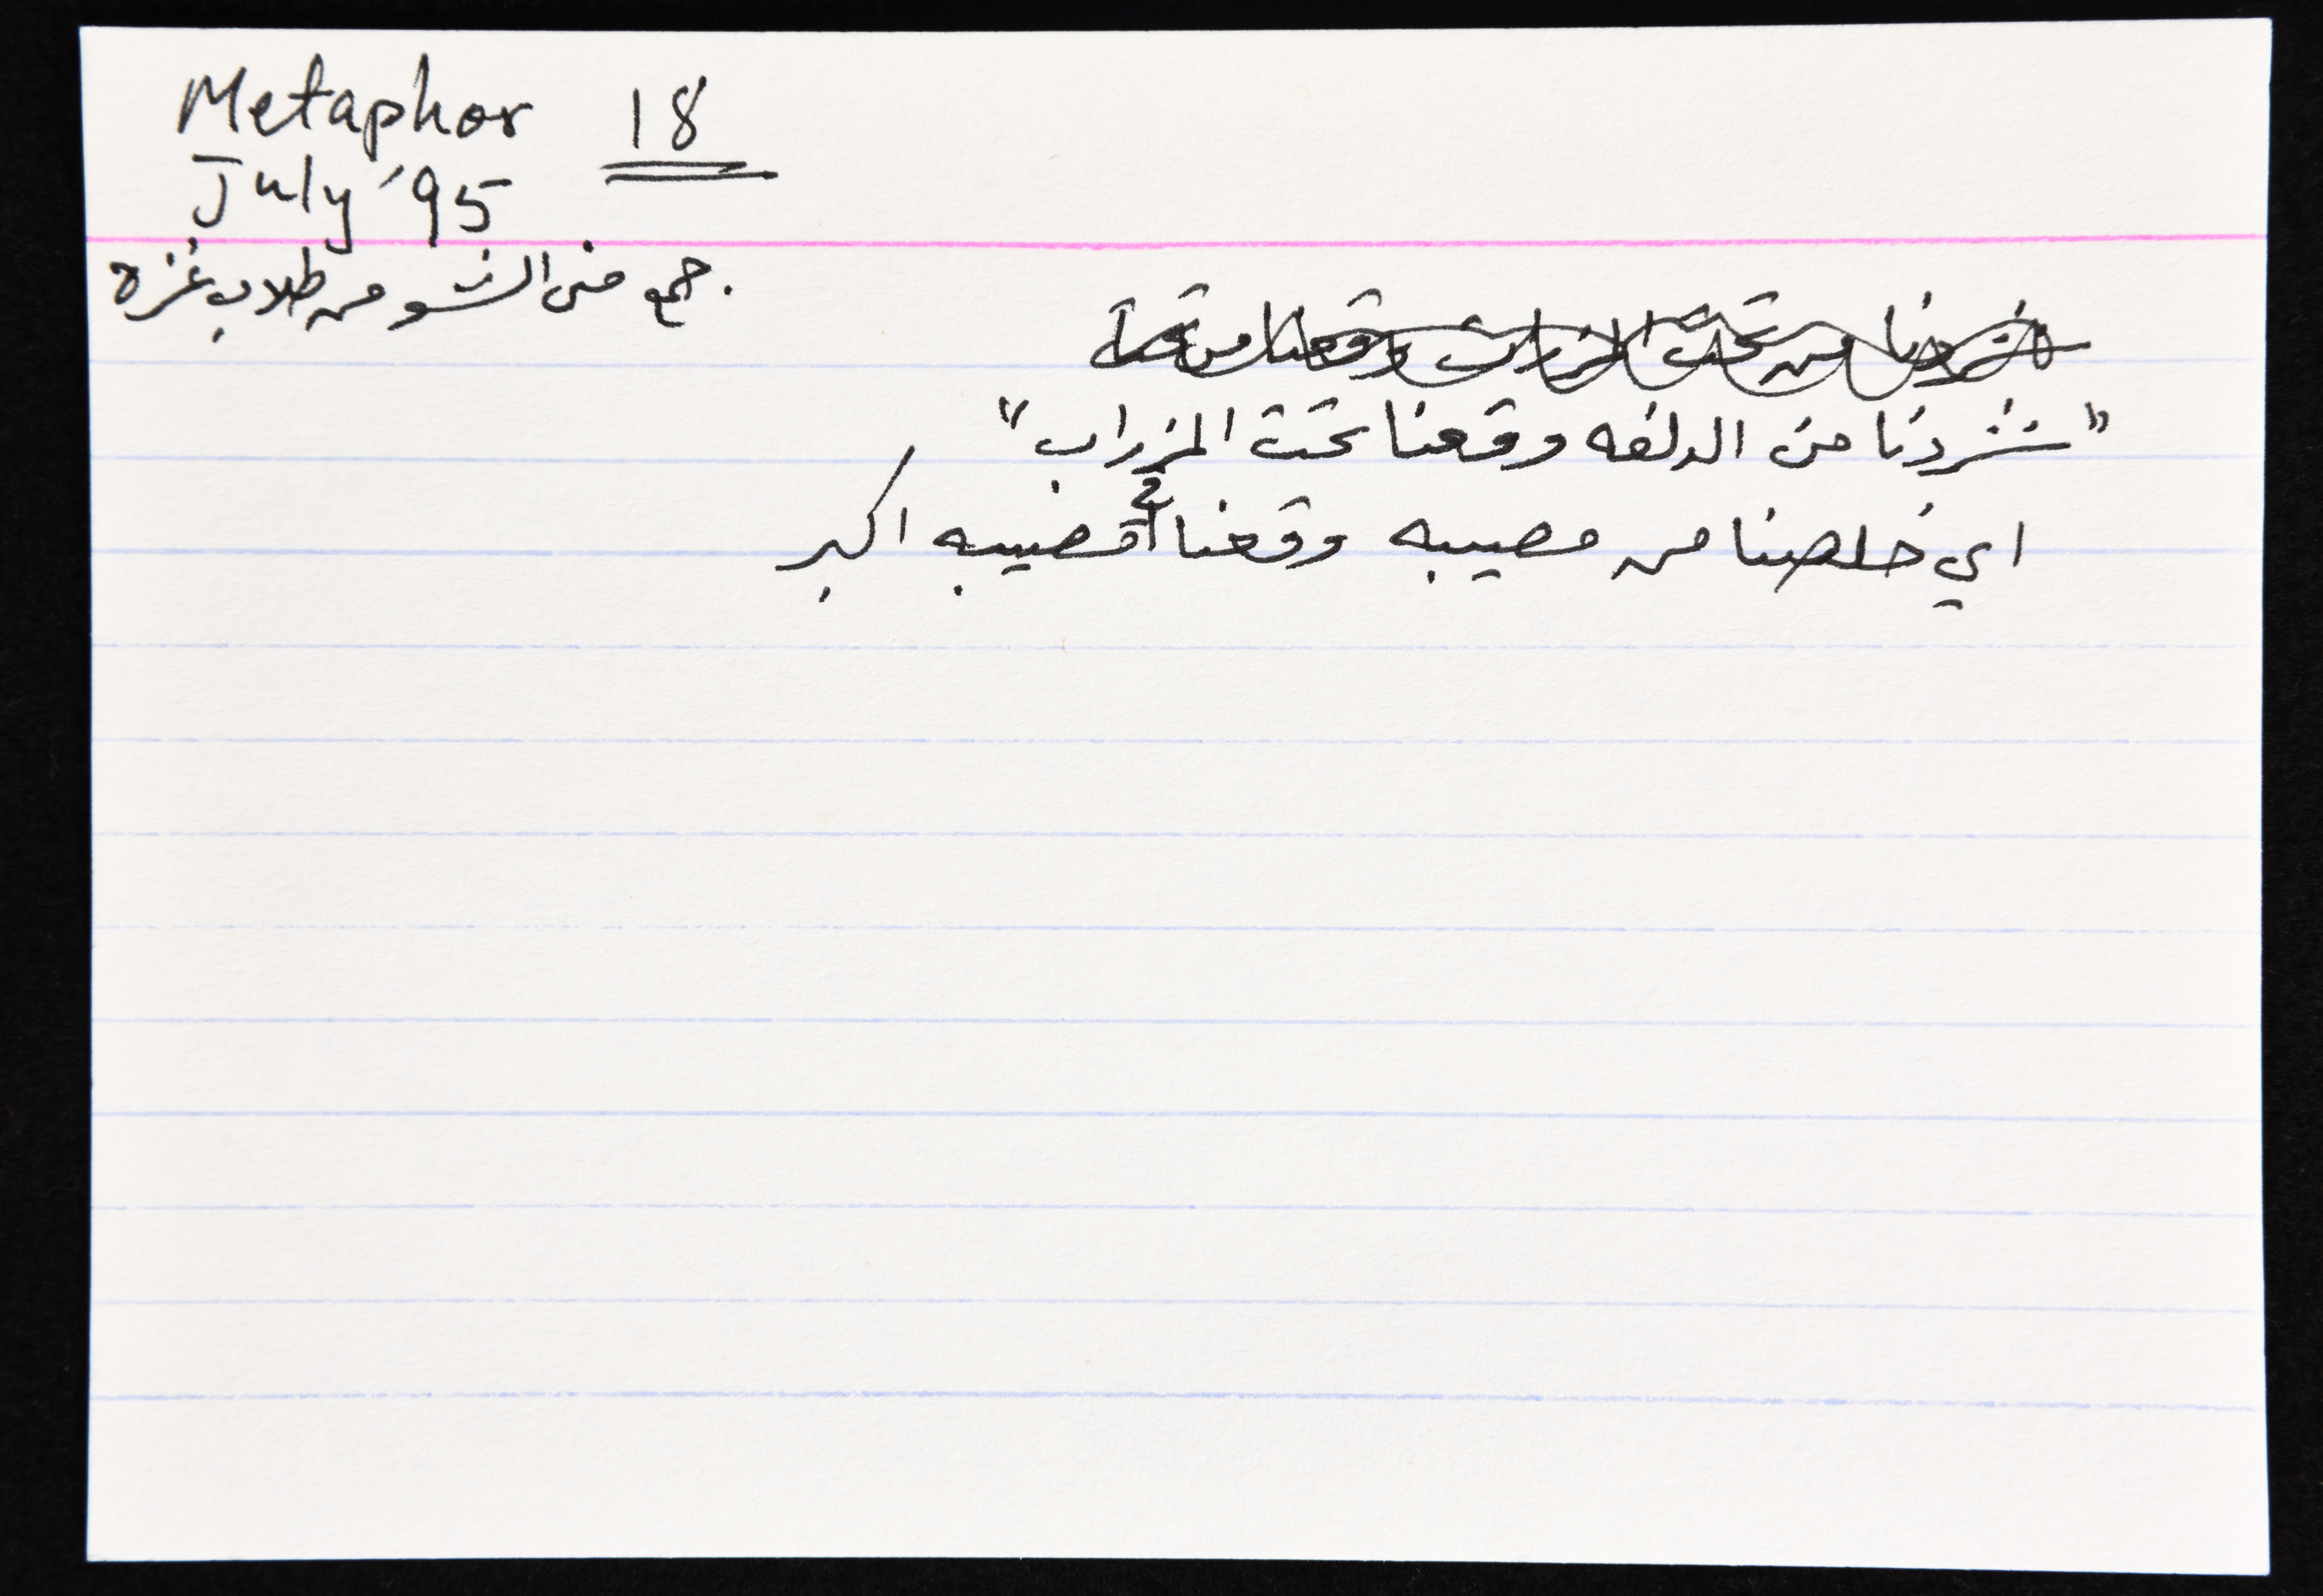 Metaphor 18
July '95
جمع منى النشو من طلاب غزه.
شردنا من تحت المزراب وقعنا من
"شردنا من الدلفه وقعنا تحت المزراب"
اي خلصنا من مصيبه وقعنا في مصيبه اكبر